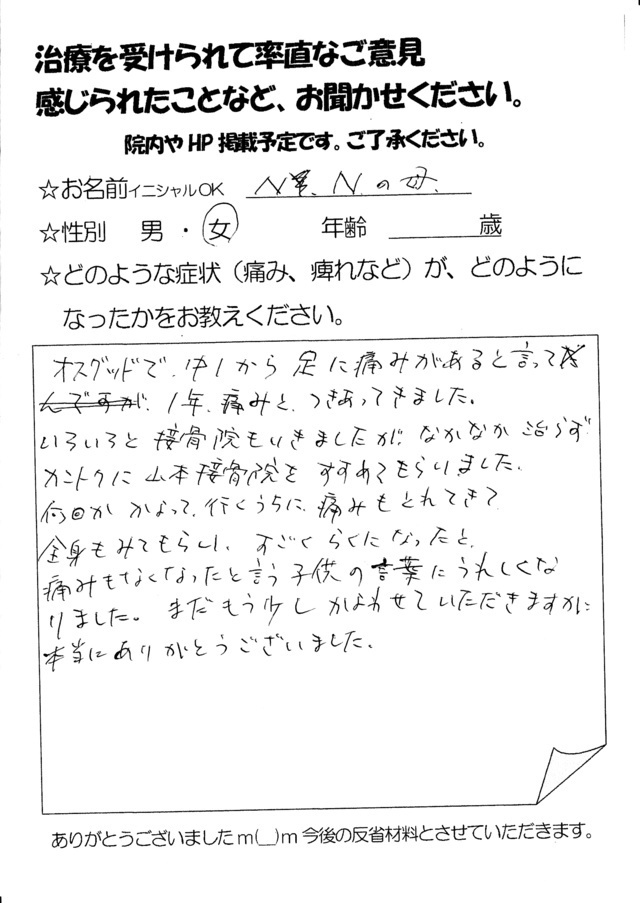 治療を受けられて率直なご意見
感じられたことなど、お聞かせください。
院内やHP掲載予定です。ご了承ください。
☆お名前イニシャルOK N. N の母.
☆性別 男 ・ 女 年齢 歳
☆どのような症状（痛み、痺れなど）が、どのように
なったかをお教えください。
オスグッドで、中1から 足に痛みがあると言って
んですが、1年、痛みと、つきあってきました。
いろいろと接骨院もいきましたが、なかなか治らず
カントクに山本接骨院を すすめてもらいました。
何回か かよって、行くうちに、痛みもとれてきて
全身もみてもらい、すごく らくになったと、
痛みもなくなったと言う子供の言葉にうれしくな
りました。 まだもう少し かよわせていただきますが
本当にありがとうございました。
ありがとうございましたm(__)m今後の反省材料とさせていただきます。